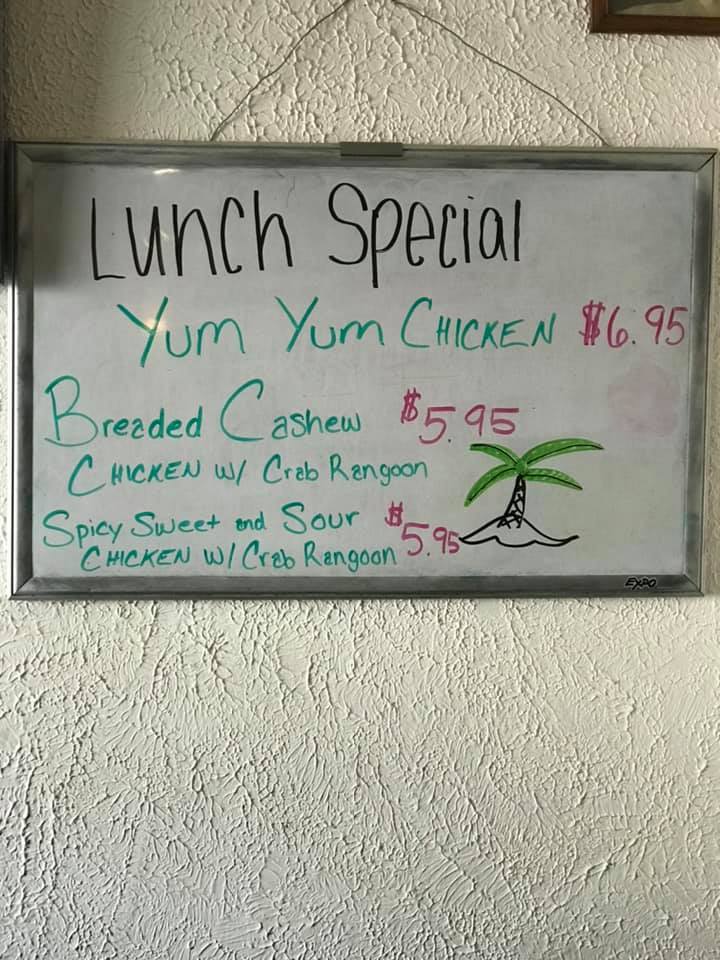 Lunch Special
Yum Yum CHICKEN $6.95
Breaded Cashew $5.95
CHICKEN w/ Crab Rangoon
Spicy Sweet and Sour $5.95
CHICKEN w/ Crab Rangoon
EXPO